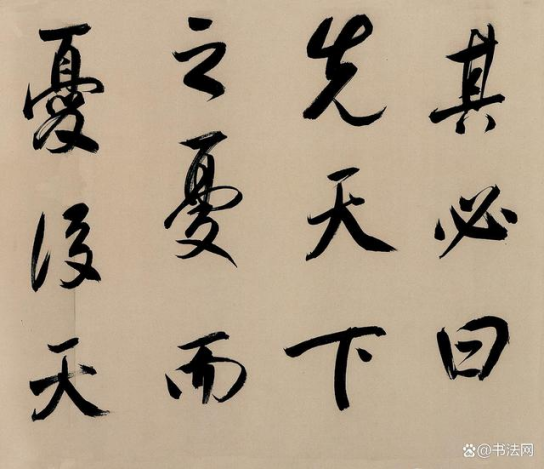 其必曰
先天下
之憂而
憂後天
@书法网